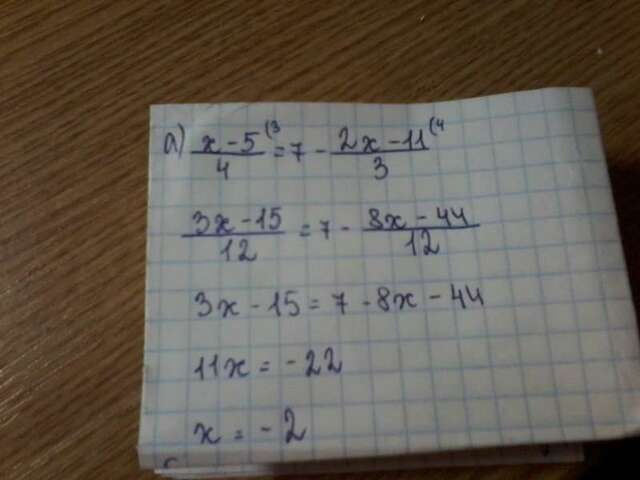 а) x - 5 (3 / 4 = 7 - 2x - 11 (4 / 3
3x - 15 / 12 = 7 - 8x - 44 / 12
3x - 15 = 7 - 8x - 44
11x = - 22
x = - 2